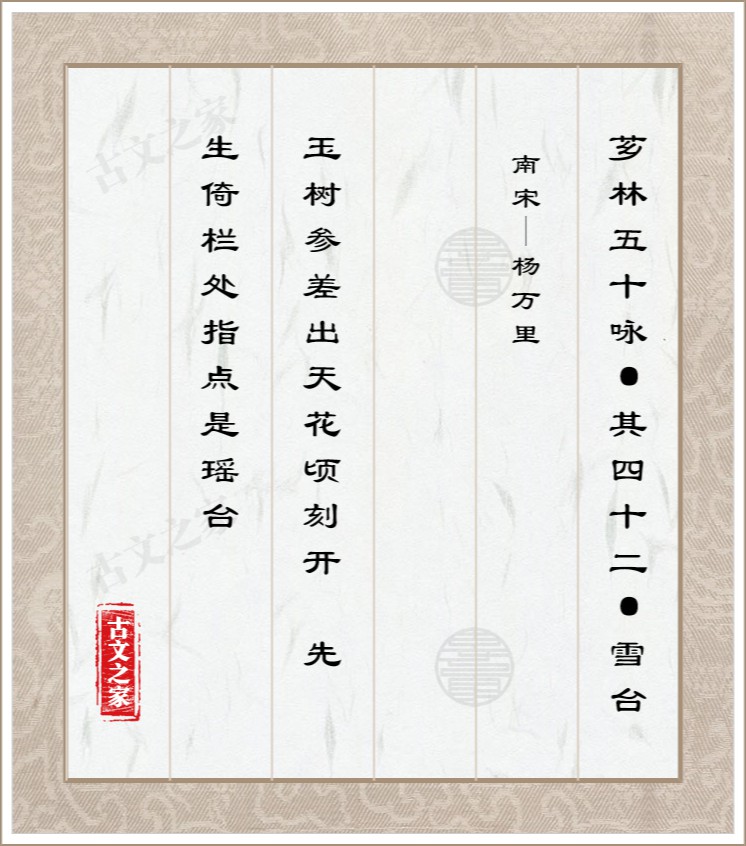 芗林五十咏●其四十二●雪台
南宋—杨万里
玉树参差出天花顷刻开 先
生倚栏处指点是瑶台
古文之家
古文之家
古文之家